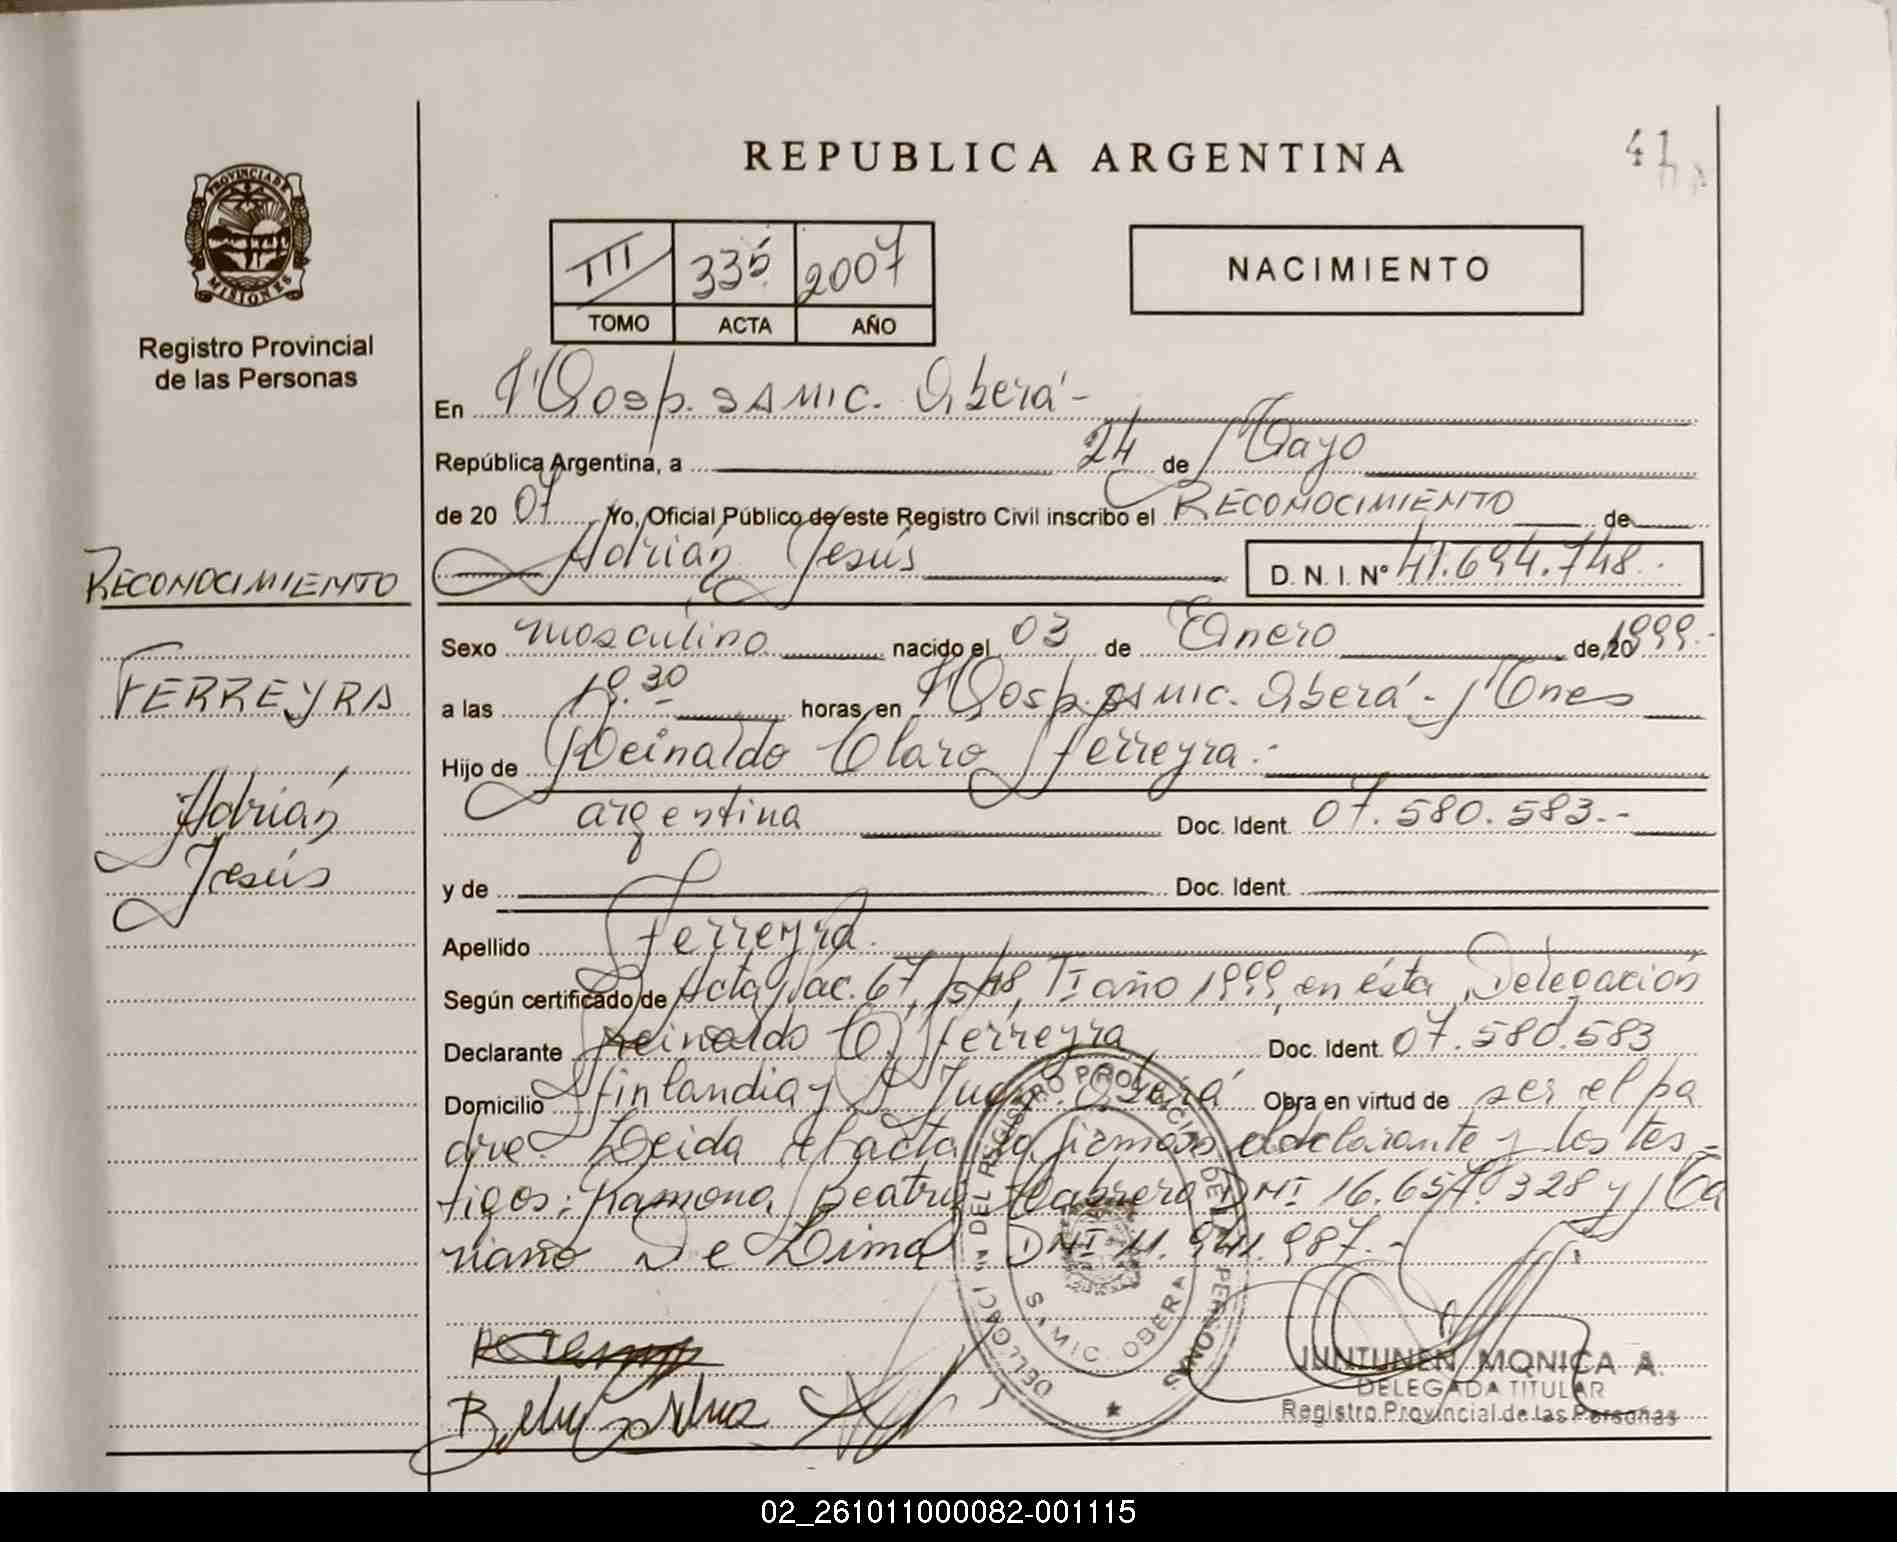 REPUBLICA ARGENTINA
41
PROVINCIA DE
MISIONES
Registro Provincial
de las Personas
III 335 2007
TOMO ACTA AÑO
NACIMIENTO
En Hosp. SAMIC. Oberá -
República Argentina, a 24 de Mayo
de 20 07 Yo, Oficial Público de este Registro Civil inscribo el RECONOCIMIENTO de
Adrián Jesús D. N. I. Nº 41.694.748.
RECONOCIMIENTO
FERREYRA
Adrián
Jesús
Sexo masculino nacido el 03 de Enero de 20 1999.-
a las 19.30 horas, en Hosp. SAMIC. Oberá - Mnes
Hijo de Reinaldo Claro Ferreyra.-
argentina Doc. Ident. 07.580.583.-
y de Doc. Ident.
Apellido Ferreyra.
Según certificado de Acta nac. 67, Fs 48, TI año 1999, en ésta Delegación
Declarante Reinaldo C. Ferreyra Doc. Ident. 07.580.583
Domicilio Finlandia y Oberá Obra en virtud de ser el pa
dre Leida el acta la firman el declarante y los tes-
tigos: Ramona Beatriz Cabrera DNI 16.657.328 y Ma
riano De Lima DNI 11.941.987.-
DEL REGISTRO PROVINCIAL DE LAS PERSONAS
SAMIC OBERA
JUNTUNEN MONICA A.
DELEGADA TITULAR
Registro Provincial de las Personas
02_261011000082-001115